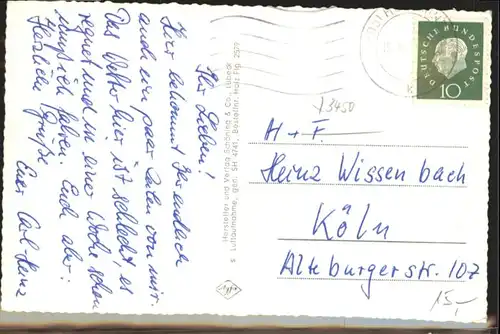 Ihr Lieben!
Hier bekommt Ihr endlich
auch ein paar Zeilen von mir.
Das Wetter hier ist schlecht, es
regnet und in einer Woche schon
muß ich fahren. Euch aber
Herzliche Grüße
Euer Carl-Heinz
Hersteller und Verlag Schöning & Co., Lübeck
Luftaufnahme, gen. SH
DEUTSCHE BUNDESPOST
10
3450
H + F.
Heinz Wissenbach
Köln
Alteburgerstr. 107
15,-